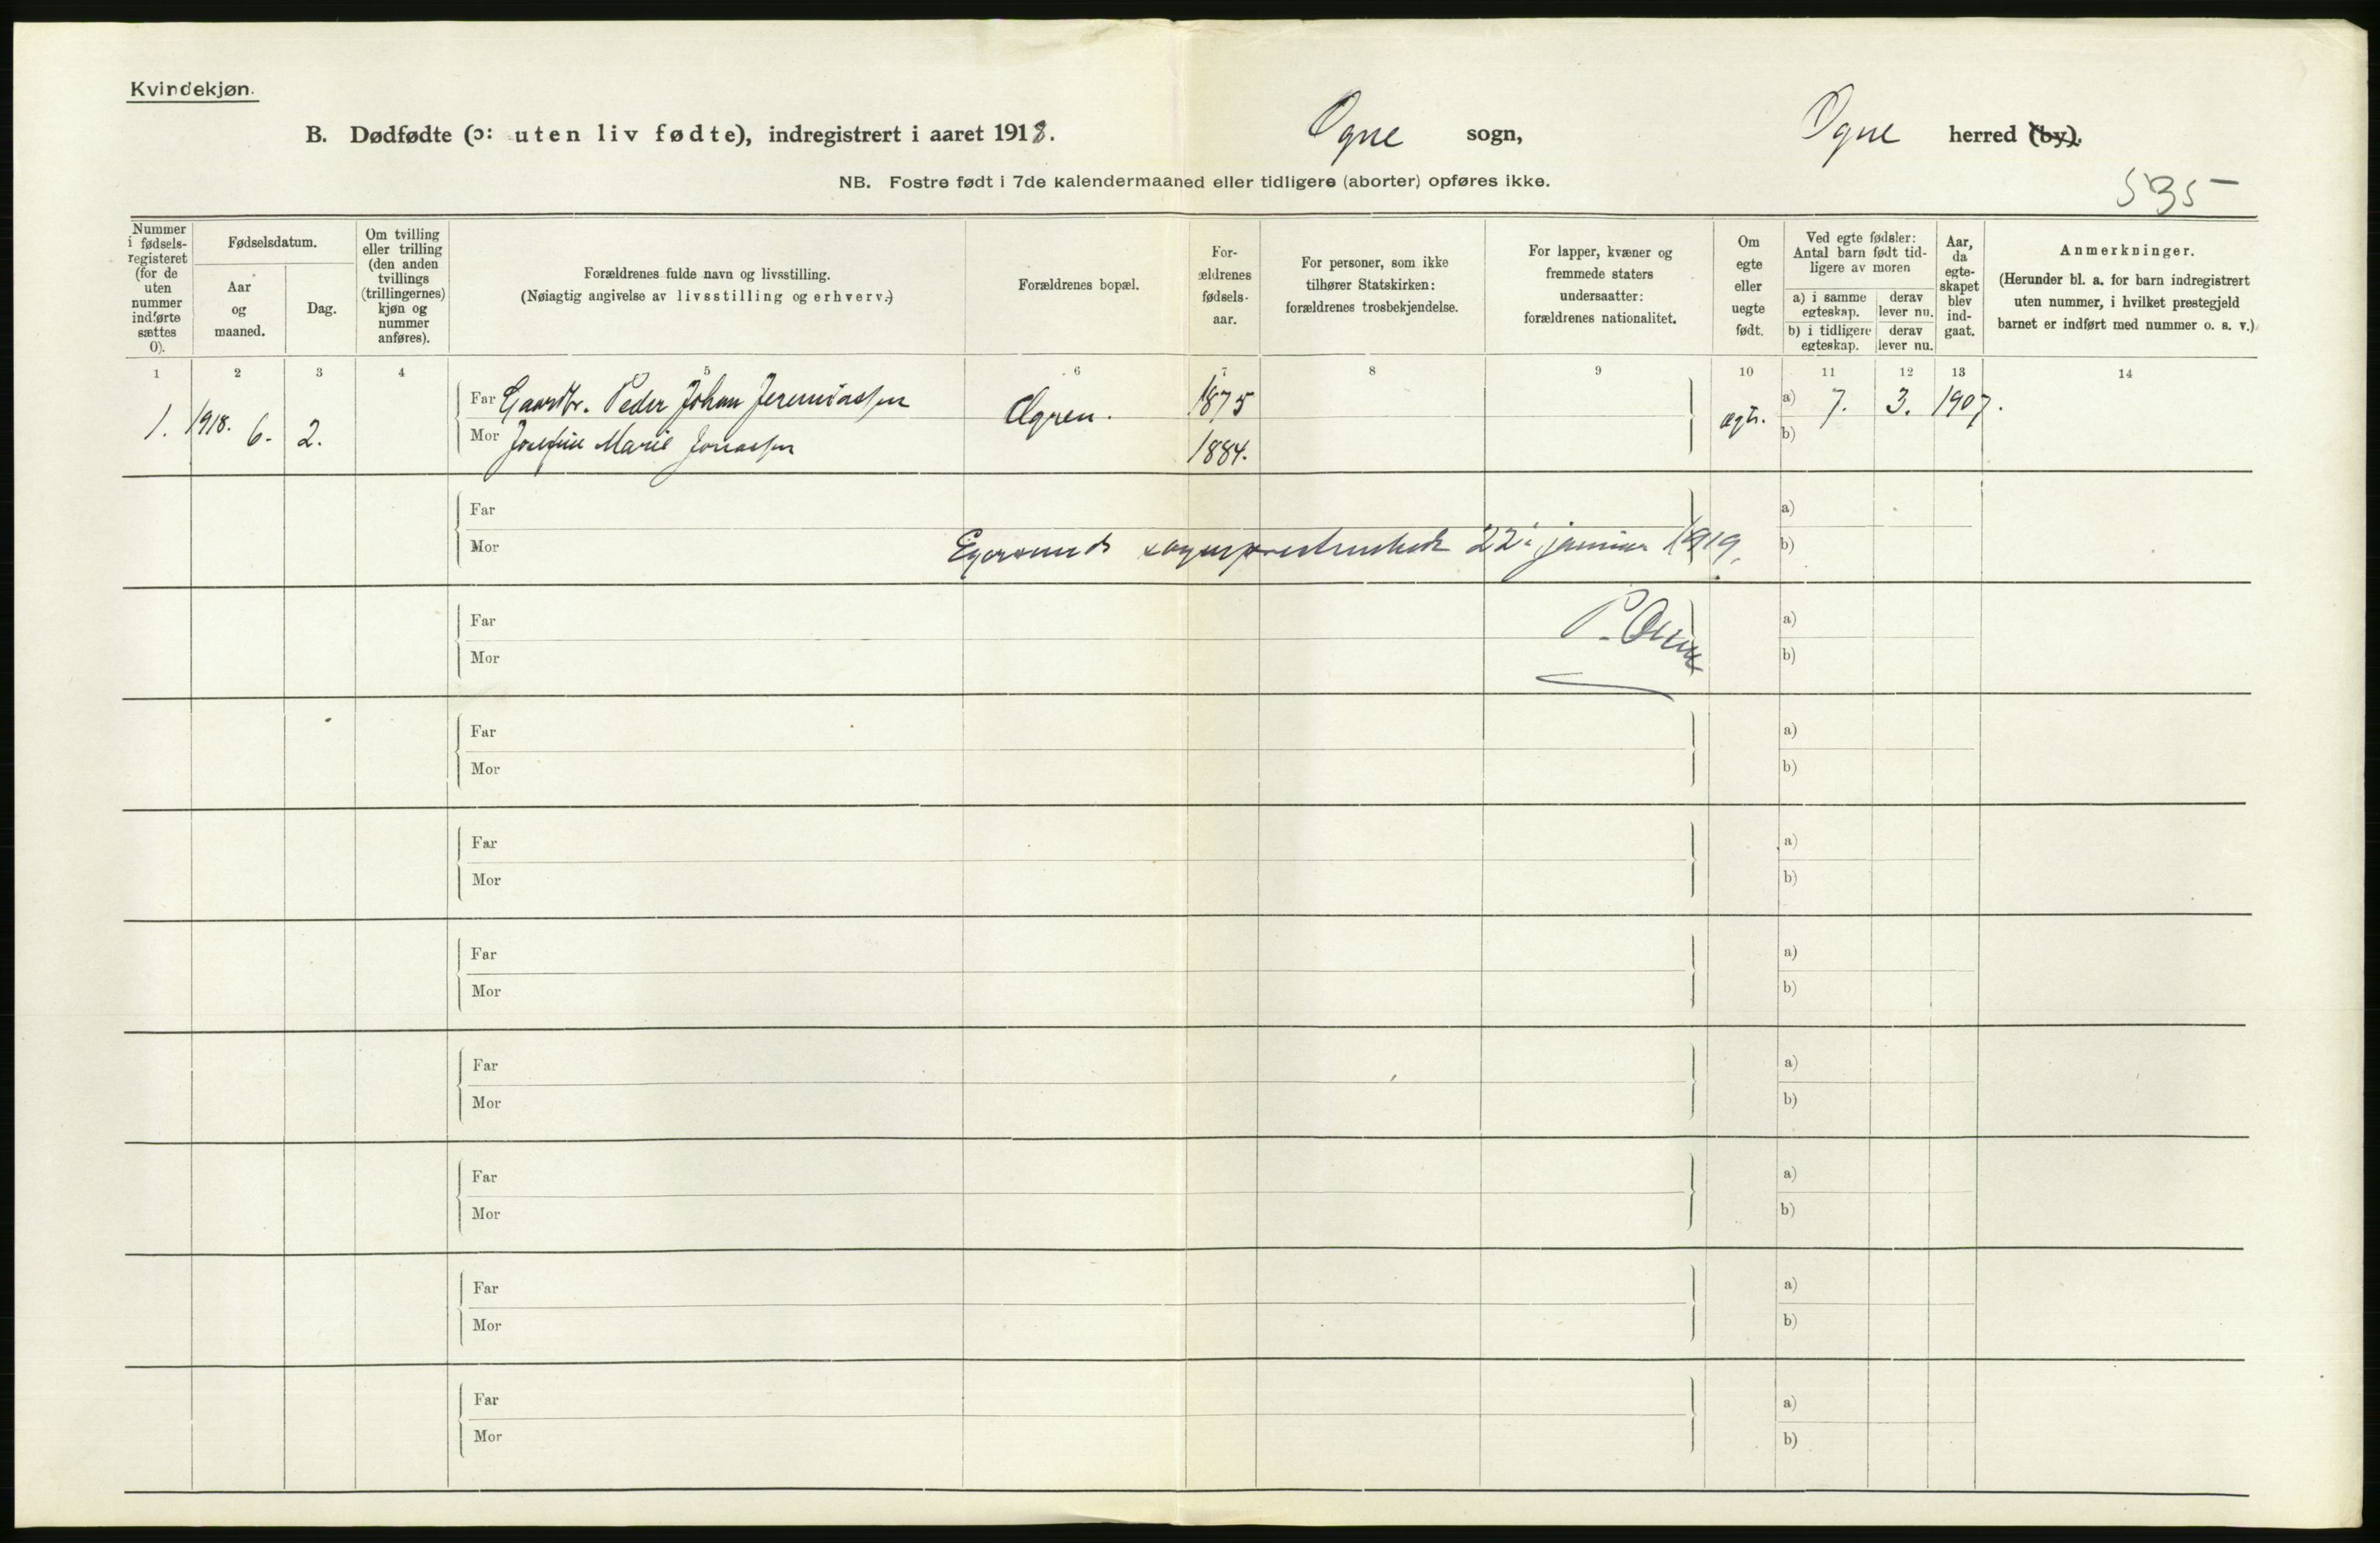 Kvindekjøn.
B. Dødfødte (ɔ: uten liv fødte), indregistrert i aaret 1918. Ogne sogn, Ogne herred (by).
NB. Fostre født i 7de kalendermaaned eller tidligere (aborter) opføres ikke.
535
Nummer i fødsels-registeret (for de uten nummer indførte sættes 0).
Fødselsdatum.
Aar og maaned.
Dag.
Om tvilling eller trilling (den anden tvillings (trillingernes) kjøn og nummer anføres).
Forældrenes fulde navn og livsstilling.
(Nøiagtig angivelse av livsstilling og erhverv.)
Forældrenes bopæl.
For-ældrenes fødsels-aar.
For personer, som ikke tilhører Statskirken: forældrenes trosbekjendelse.
For lapper, kvæner og fremmede staters undersaatter: forældrenes nationalitet.
Om egte eller uegte født.
Ved egte fødsler: Antal barn født tid-ligere av moren
a) i samme egteskap. derav lever nu.
b) i tidligere egteskap. derav lever nu.
Aar, da egte-skapet blev ind-gaat.
Anmerkninger.
(Herunder bl. a. for barn indregistrert uten nummer, i hvilket prestegjeld barnet er indført med nummer o. s. v.)
1 2 3 4 5 6 7 8 9 10 11 12 13 14
1. 1918. 6. 2. Far Gaardbr. Peder Johan Jeremiassen Ogren. 1875 egte. a) 7. 3. 1907.
Mor Josefine Marie Jonassen 1884. b)
Far a)
Mor Egersunds sogneprestembede 22. januar 1919. b)
Far P. a)
Mor b)
Far a)
Mor b)
Far a)
Mor b)
Far a)
Mor b)
Far a)
Mor b)
Far a)
Mor b)
Far a)
Mor b)
Far a)
Mor b)